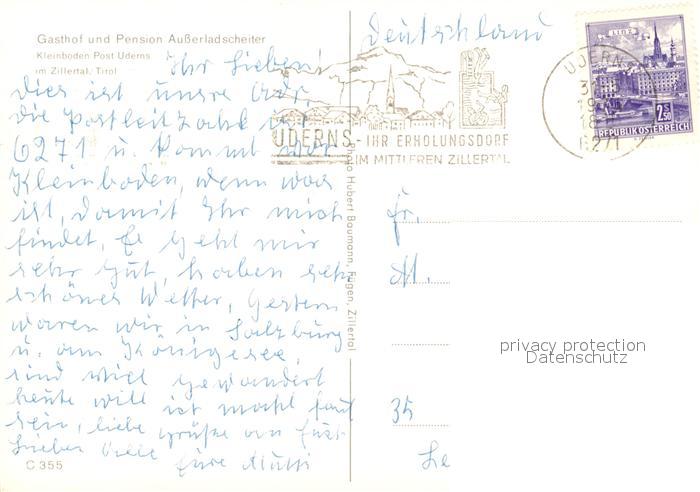 Gasthof und Pension Außerladscheiter
Kleinboden Post Uderns
im Zillertal, Tirol
Ihr Lieben!
dies ist unsre Adr.
die Postleitzahl ist
6271 u. kommt über
Kleinboden, wenn was
ist, damit Ihr mich
findet. Es geht mir
sehr gut, haben sehr
schönes Wetter, Gestern
waren wir in Salzburg
u. am Königssee,
sind viel gewandert
heute will ich mal faul
sein, liebe Grüße an
Eure Mutti
C 355
Photo Hubert Baumann, Fügen, Zillertal
Deutschland
UDERNS - IHR ERHOLUNGSDORF
IM MITTLEREN ZILLERTAL
UDERNS
6271
LINZ
2.50
REPUBLIK ÖSTERREICH
Fr.
M.
35
Le
privacy protection
Datenschutz